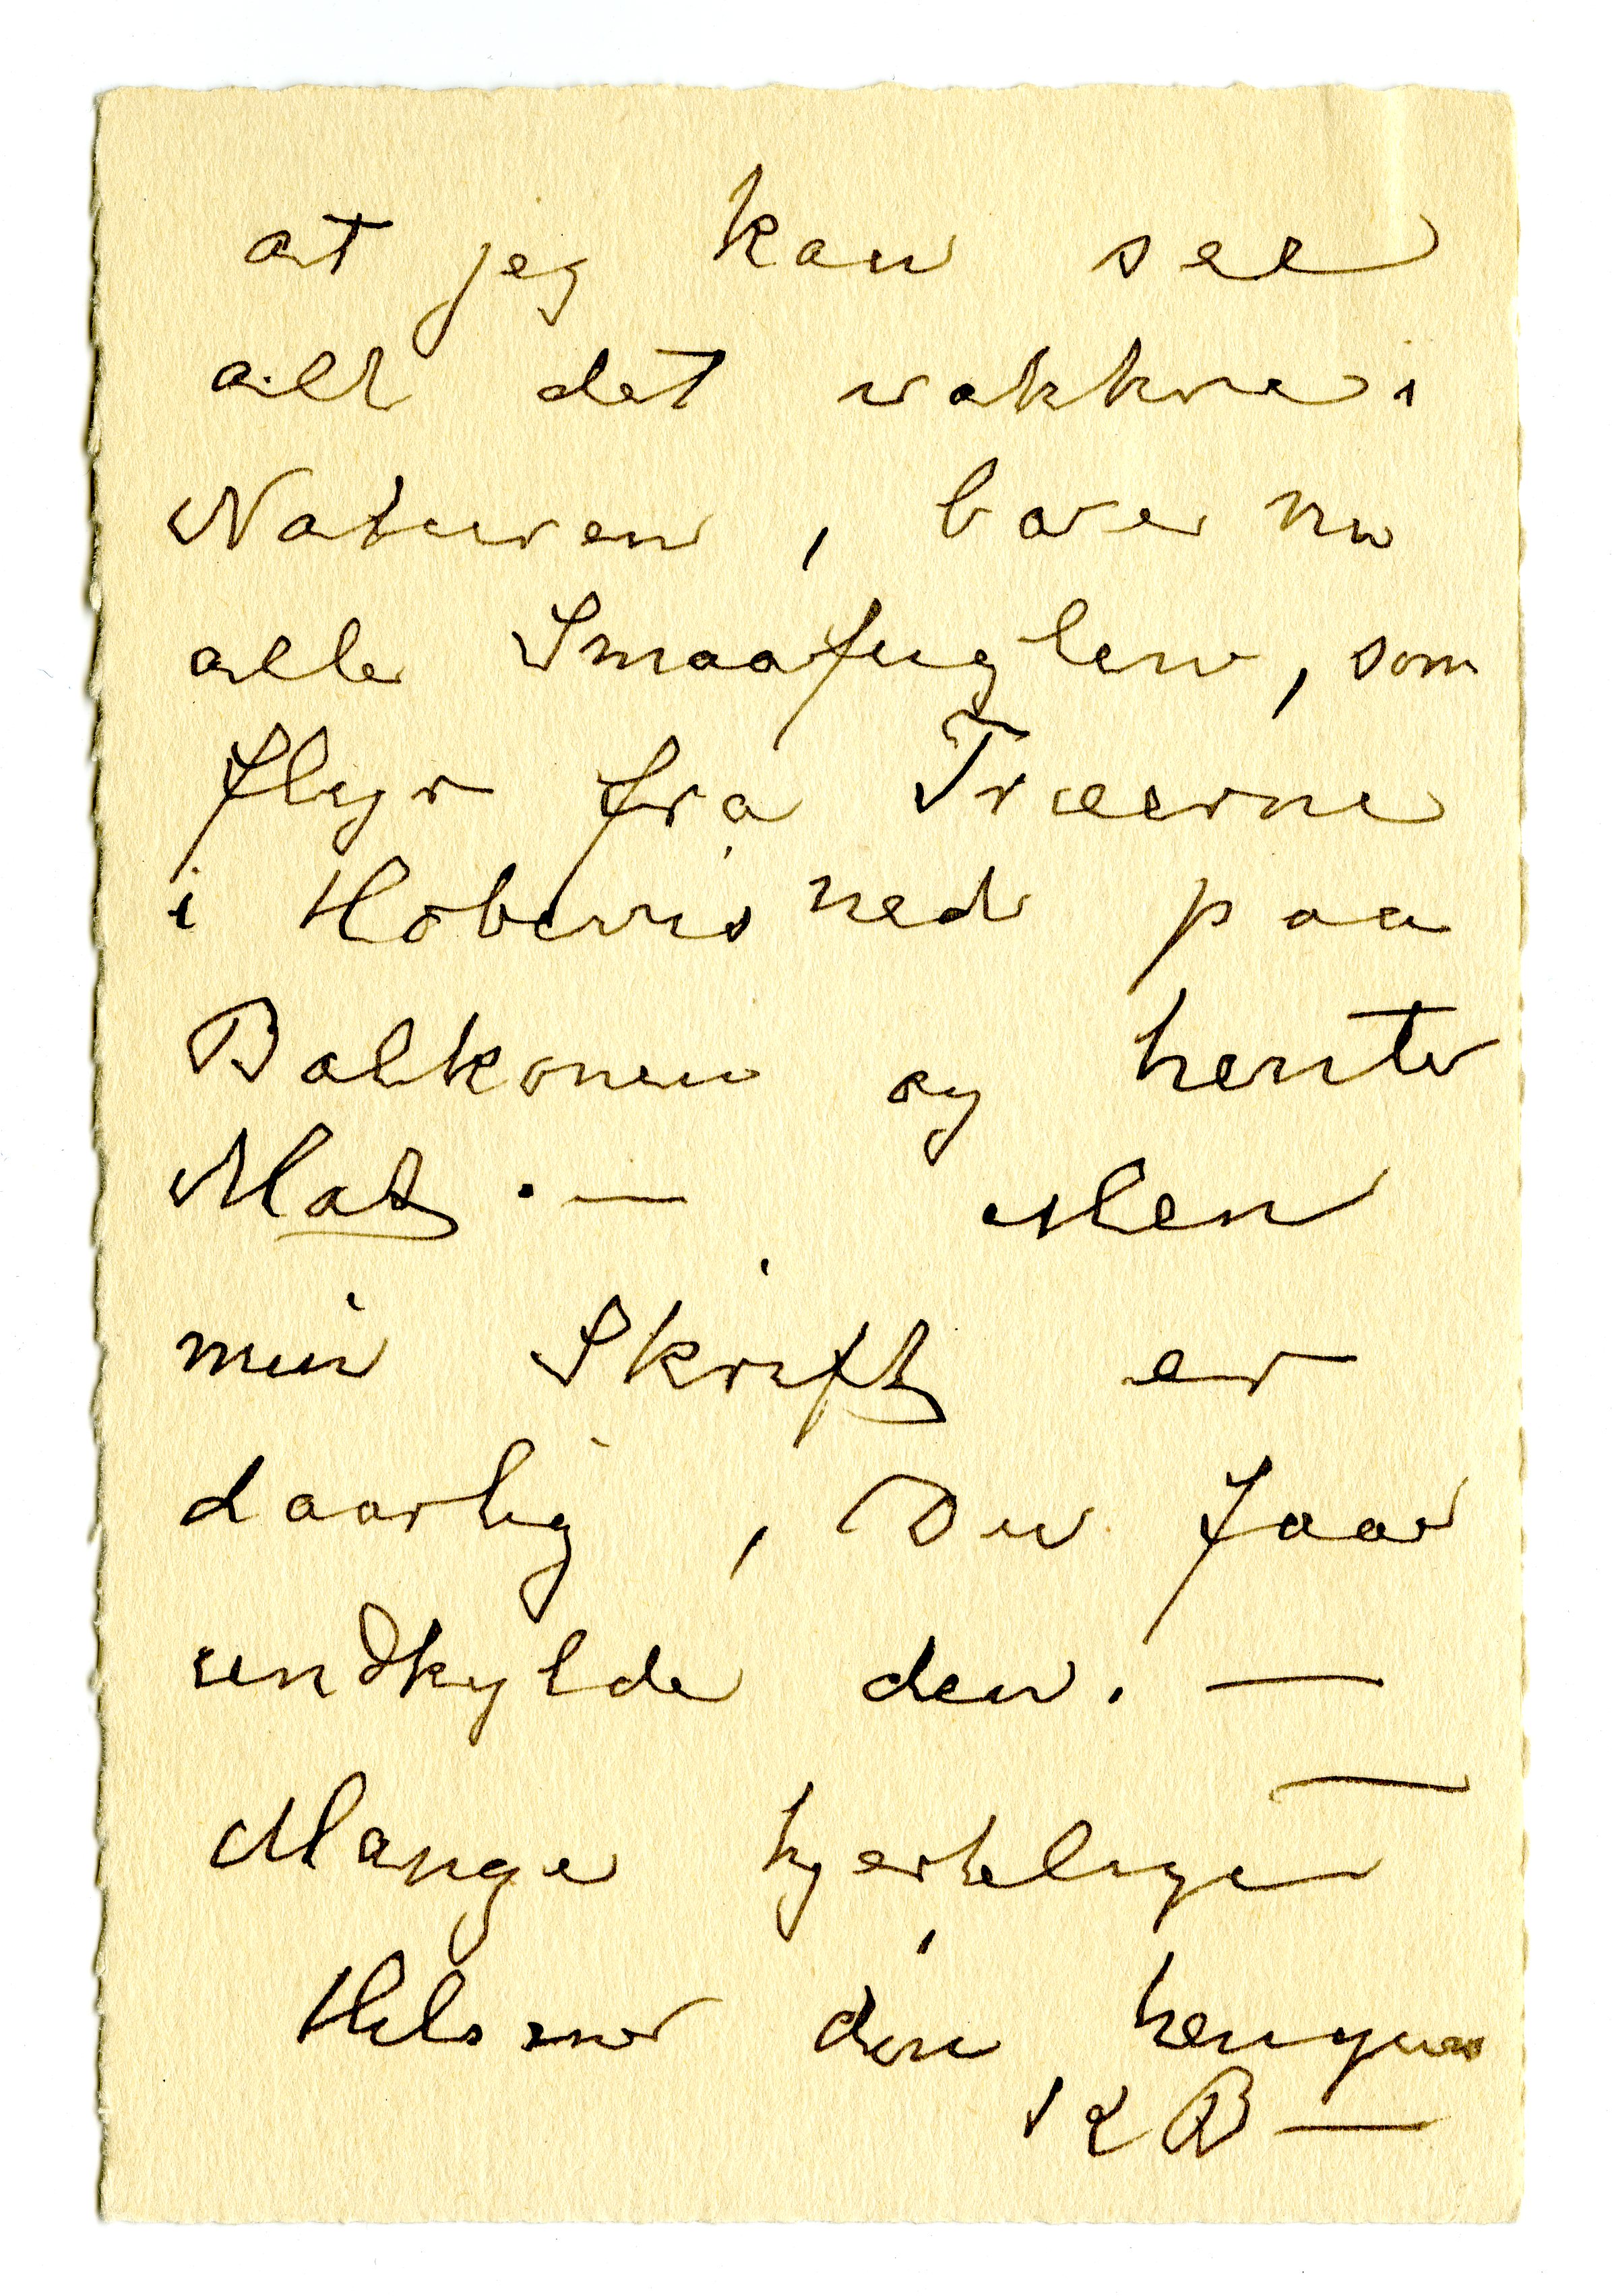 at jeg kan see
alt det vakkre i
Naturen, bare nu
alle Smaafuglen, som
flyr fra Træerne
i ned paa
Balkonen og henter
Mat. —     Men
min Skrift er
daarlig, Du faar
undskylde den. —
Mange hjertelige
Hilsener din hengivne
B —